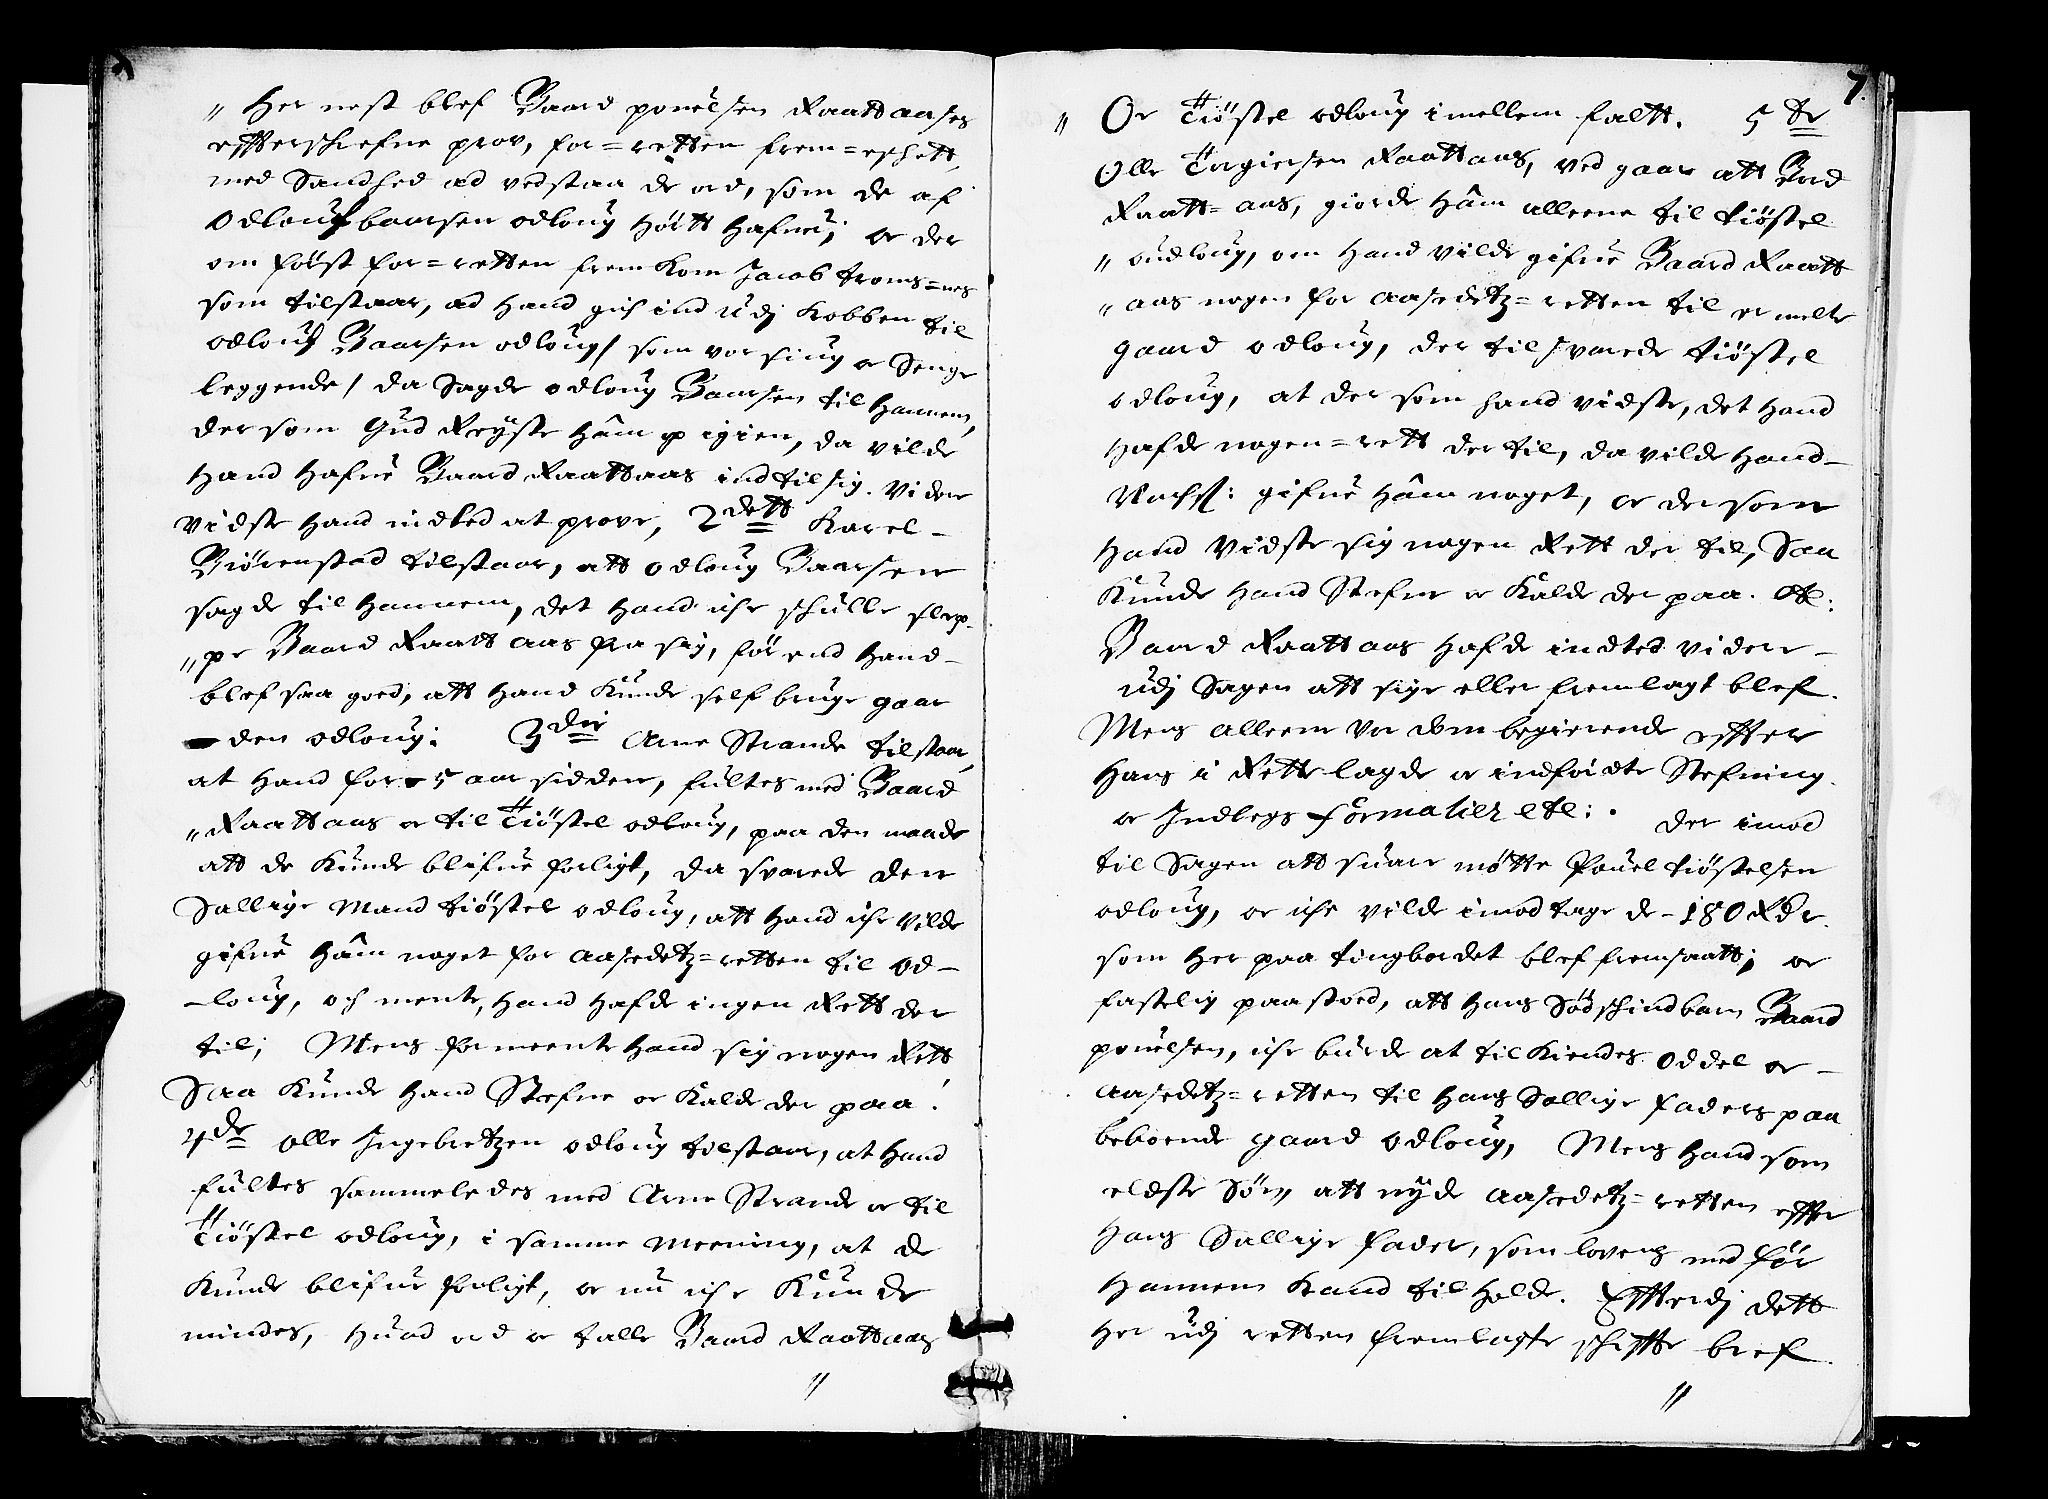 " Her nest blef Baard pouelsen Raattaases
effterschrefne prov, for=retten frem=eschett,
med Sandhed ad vedstaa de ord, som de af
Odlouf baarsen odloug hørtt hafue; og der
om først for=retten fremkom Jacob Froms=nes
som tilstaar, ad hand gich ind udj kobben til
odlouf Baarsen odloug / som var siug og Senge
leggende / da Sagde odloug Baarsen til hannem,
dersom Gud Reyste hâm op igien, da vilde
hand hafue Baard Raattaas ind til sig. Videre
vidste hand indted at prove, 2dett Karel-
Biørenstad tilstaar, att odloug Baarsen
sagde til hannem, det hand iche schulle slep-
" pe Baard Raattaas fra sig, før end hand-
blef saa goed, att hand kunde self bruge gaar
-den odloug: 3die Arne Strande tilstaar,
at hand for 5 aar sidden, fultes med Baard
" Raattaas og til Tiøstel odloug, paa den maade
att de kunde blifue forligt, da svarede den
Sallige mand tiøstel odloug, att hand iche vilde
gifue hâm noget for aasedetz=retten til od-
-loug, och mente, hand hafde ingen Rett der
til; Mens formeente hand sig nogen Rett
Saa kunde hand Stefne og kalde der paa.
4de olle Ingebretzen odloug tilstaar, at hand
fultes sammeledes med Arne Strande og til
Tiøstel odloug, i samme meening, at de
kunde blifue forligt, og nu iche kunde
mindes, huad ord og talle Baard Raattaas
"
7.
" Og Tiøstel odloug imellem faltt. 5te
Olle Torgiersen Raattaas, ved gaar att Bord
Raatt=aas, giorde hâm alleene til tiøstel
" oudloug, om hand vilde gifue Baard Raatt
" aas nogen for aasedetz=retten til ermelte
gaard odloug, der til svarede tiøstel
odloug, at der som hand vidste, det hand
hafde nogen=rett dertil, da vilde hand-
gifue hâm noget, og der som
hand vidste sig nogen Rett der til, Saa
kunde hand Stefne og kalde der paa. etc:
Baard Raattaas hafde indted videre-
udj Sagen att sige eller fremlagt blef.
Mens alleene var dom begierende effter
hans i Rette lagde og indførdte Stefning
og Indlegs formalier etc: . der imod
til Sagen att suare møtte Pouel tiøstelsen
odloug, og iche vilde imod tage de - 180 Rdr.
som her paa tingbordet blef fremsaatt; og
fastelig paastoed, att hans Sødschindbarn Baard
pouelsen, iche burde at tilkiendes oddel og-
aasedetz=retten til hans Sallige faders paa
beboende gaard odloug, Mens hand som
eldste Søn, att nyde aasedetz=retten effter
hans Sallige fader, som lovens med før
hannem kand til holde. Effterdj dett
her udj retten fremlagte schiffte bref.
"